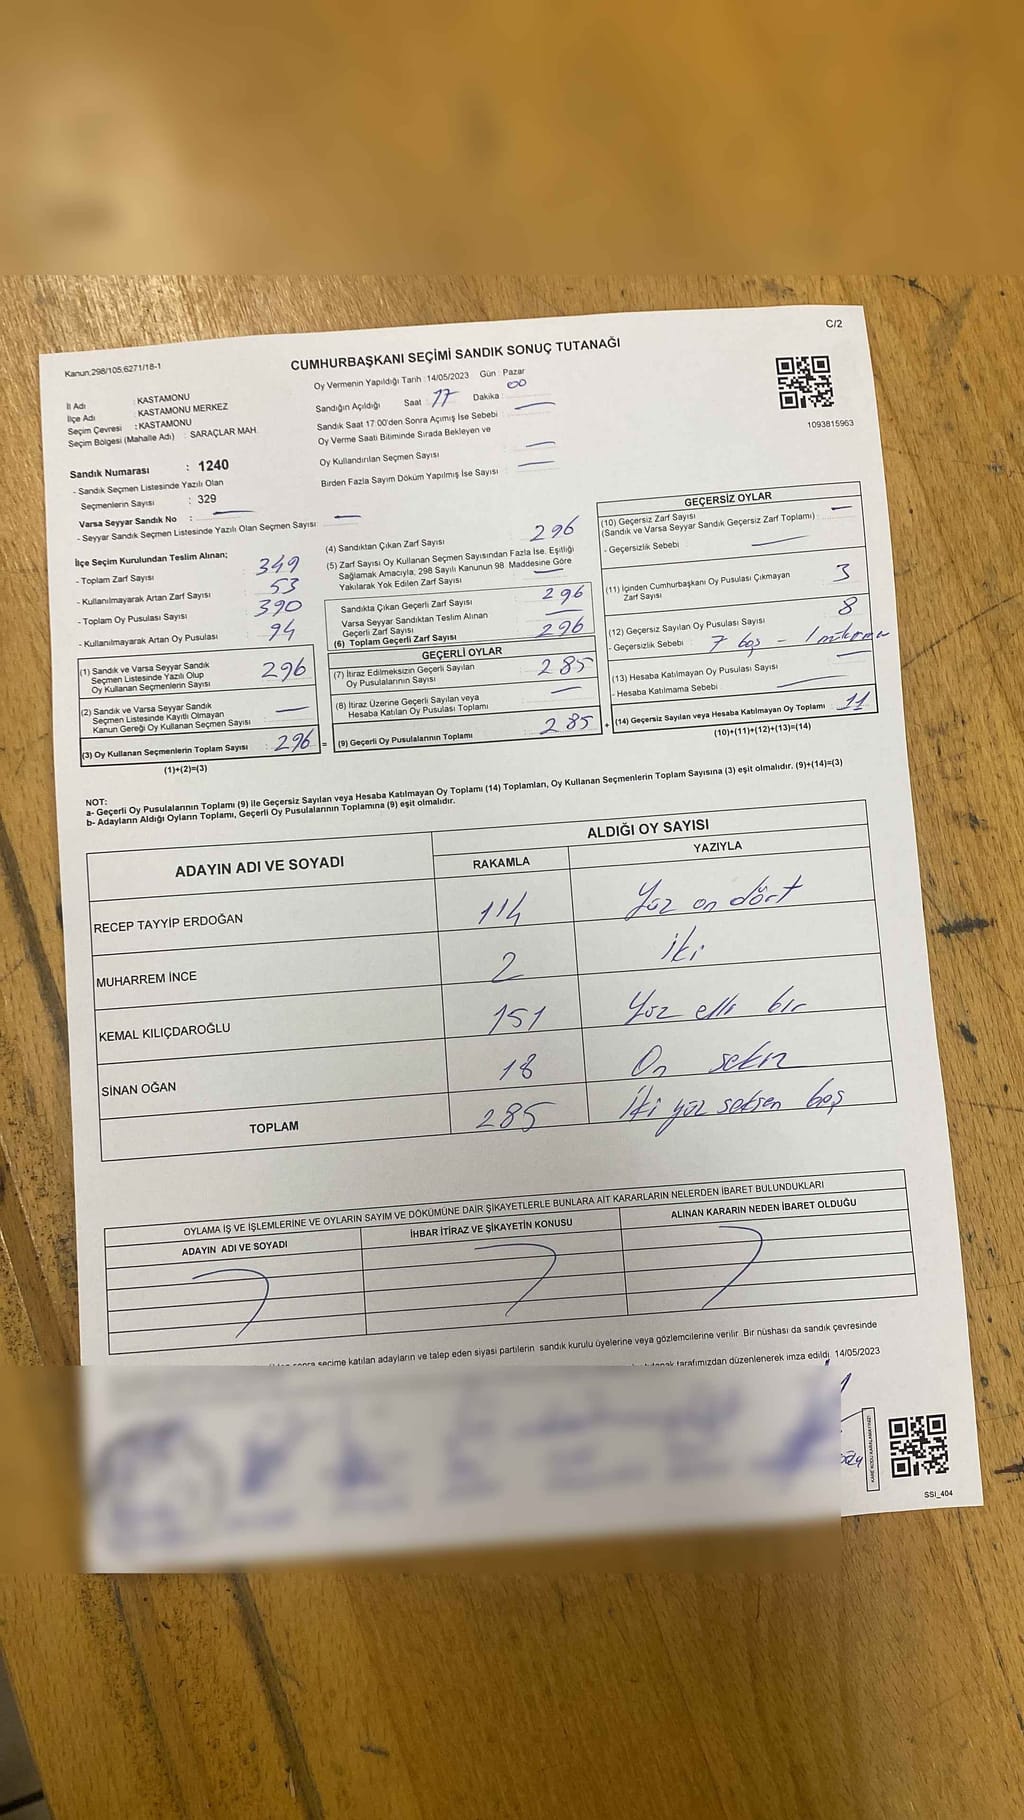 C/2
Kanun;298/105;6271/18-1
CUMHURBAŞKANI SEÇİMİ SANDIK SONUÇ TUTANAĞI
İl Adı : KASTAMONU
İlçe Adı : KASTAMONU MERKEZ
Seçim Çevresi : KASTAMONU
Seçim Bölgesi (Mahalle Adı) : SARAÇLAR MAH.
Oy Vermenin Yapıldığı Tarih :14/05/2023 Gün : Pazar
Sandığın Açıldığı Saat 17 Dakika 00
Sandık Saat 17:00'den Sonra Açımış İse Sebebi —
Oy Verme Saati Bitiminde Sırada Bekleyen ve
Oy Kullandırılan Seçmen Sayısı —
Birden Fazla Sayım Döküm Yapılmış İse Sayısı : —
1093815963
Sandık Numarası : 1240
- Sandık Seçmen Listesinde Yazılı Olan
Seçmenlerin Sayısı : 329
Varsa Seyyar Sandık No : —
- Seyyar Sandık Seçmen Listesinde Yazılı Olan Seçmen Sayısı : —
İlçe Seçim Kurulundan Teslim Alınan;
- Toplam Zarf Sayısı : 349
- Kullanılmayarak Artan Zarf Sayısı : 53
- Toplam Oy Pusulası Sayısı : 390
- Kullanılmayarak Artan Oy Pusulası : 94
(1) Sandık ve Varsa Seyyar Sandık
Seçmen Listesinde Yazılı Olup
Oy Kullanan Seçmenlerin Sayısı : 296
(2) Sandık ve Varsa Seyyar Sandık
Seçmen Listesinde Kayıtlı Olmayan
Kanun Gereği Oy Kullanan Seçmen Sayısı : —
(3) Oy Kullanan Seçmenlerin Toplam Sayısı : 296 =
(1)+(2)=(3)
(4) Sandıktan Çıkan Zarf Sayısı : 296
(5) Zarf Sayısı Oy Kullanan Seçmen Sayısından Fazla İse, Eşitliği
Sağlamak Amacıyla, 298 Sayılı Kanunun 98. Maddesine Göre
Yakılarak Yok Edilen Zarf Sayısı : —
Sandıkta Çıkan Geçerli Zarf Sayısı : 296
Varsa Seyyar Sandıktan Teslim Alınan
Geçerli Zarf Sayısı : —
(6) Toplam Geçerli Zarf Sayısı : 296
GEÇERLİ OYLAR
(7) İtiraz Edilmeksizin Geçerli Sayılan
Oy Pusulalarının Sayısı : 285
(8) İtiraz Üzerine Geçerli Sayılan veya
Hesaba Katılan Oy Pusulası Toplamı : —
(9) Geçerli Oy Pusulalarının Toplamı : 285 +
GEÇERSİZ OYLAR
(10) Geçersiz Zarf Sayısı
(Sandık ve Varsa Seyyar Sandık Geçersiz Zarf Toplamı) : —
- Geçersizlik Sebebi : —
(11) İçinden Cumhurbaşkanı Oy Pusulası Çıkmayan
Zarf Sayısı : 3
(12) Geçersiz Sayılan Oy Pusulası Sayısı : 8
- Geçersizlik Sebebi : 7 boş - 1 mükerrer
(13) Hesaba Katılmayan Oy Pusulası Sayısı : —
- Hesaba Katılmama Sebebi : —
(14) Geçersiz Sayılan veya Hesaba Katılmayan Oy Toplamı : 11
(10)+(11)+(12)+(13)=(14)
NOT:
a- Geçerli Oy Pusulalarının Toplamı (9) ile Geçersiz Sayılan veya Hesaba Katılmayan Oy Toplamı (14) Toplamları, Oy Kullanan Seçmenlerin Toplam Sayısına (3) eşit olmalıdır. (9)+(14)=(3)
b- Adayların Aldığı Oyların Toplamı, Geçerli Oy Pusulalarının Toplamına (9) eşit olmalıdır.
ADAYIN ADI VE SOYADI ALDIĞI OY SAYISI
RAKAMLA YAZIYLA
RECEP TAYYİP ERDOĞAN 114 Yüz on dört
MUHARREM İNCE 2 iki
KEMAL KILIÇDAROĞLU 151 Yüz elli bir
SİNAN OĞAN 18 On sekiz
TOPLAM 285 iki yüz seksen beş
OYLAMA İŞ VE İŞLEMLERİNE VE OYLARIN SAYIM VE DÖKÜMÜNE DAİR ŞİKAYETLERLE BUNLARA AİT KARARLARIN NELERDEN İBARET BULUNDUKLARI
ADAYIN ADI VE SOYADI İHBAR İTİRAZ VE ŞİKAYETİN KONUSU ALINAN KARARIN NEDEN İBARET OLDUĞU
sonra seçime katılan adayların ve talep eden siyasi partilerin sandık kurulu üyelerine veya gözlemcilerine verilir. Bir nüshası da sandık çevresinde
tarafımızdan düzenlenerek imza edildi. 14/05/2023
KARE KODU KARALAMAYINIZ!
SSI_404